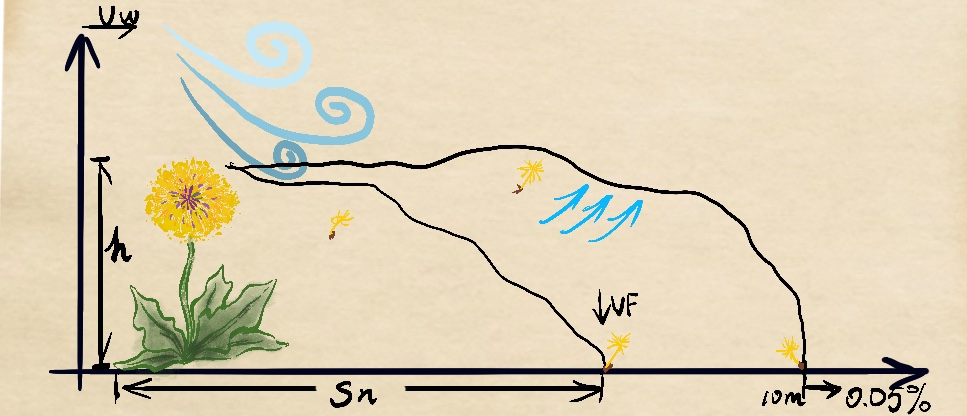 Vw
h
VF
Sn
10m → 0.05%